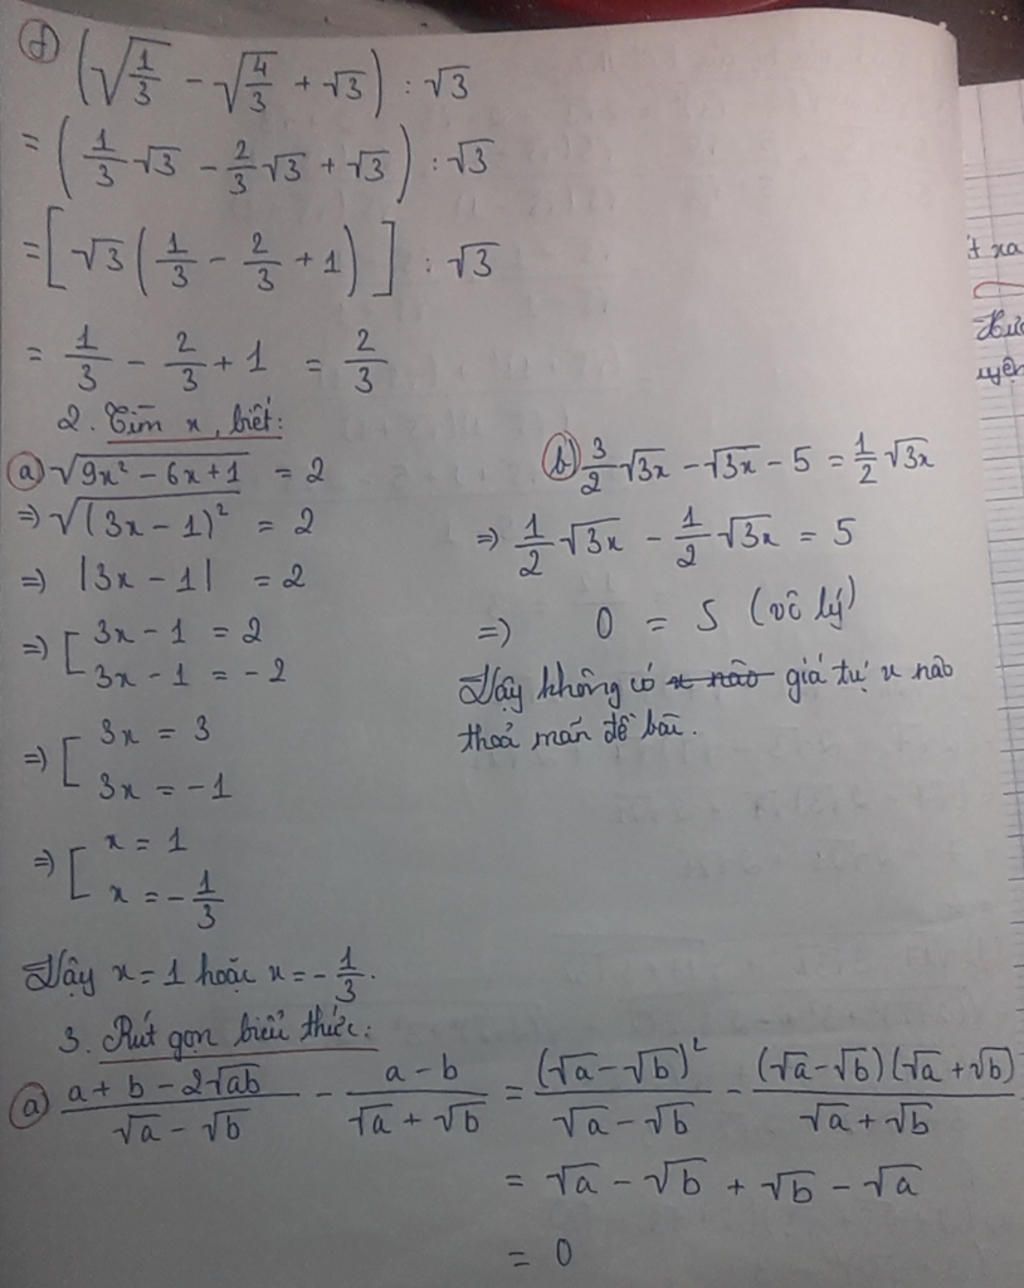 d) (√(1/3) - √(4/3) + √3) : √3
= (1/3 √3 - 2/3 √3 + √3) : √3
= [√3 (1/3 - 2/3 + 1)] : √3
= 1/3 - 2/3 + 1 = 2/3
2. Tìm x, biết:
a) √(9x² - 6x + 1) = 2
⇒ √((3x - 1)²) = 2
⇒ |3x - 1| = 2
⇒ [ 3x - 1 = 2
3x - 1 = -2
⇒ [ 3x = 3
3x = -1
⇒ [ x = 1
x = -1/3
Vậy x = 1 hoặc x = -1/3.
b) 3/2 √3x - √3x - 5 = 1/2 √3x
⇒ 1/2 √3x - 1/2 √3x = 5
⇒ 0 = 5 (vô lý)
Vậy không có x nào giá trị x nào
thoả mãn đề bài.
3. Rút gọn biểu thức:
a) (a + b - 2√ab)/(√a - √b) - (a - b)/(√a + √b) = (√a - √b)²/(√a - √b) - (√a - √b)(√a + √b)/(√a + √b)
= √a - √b + √b - √a
= 0
xa